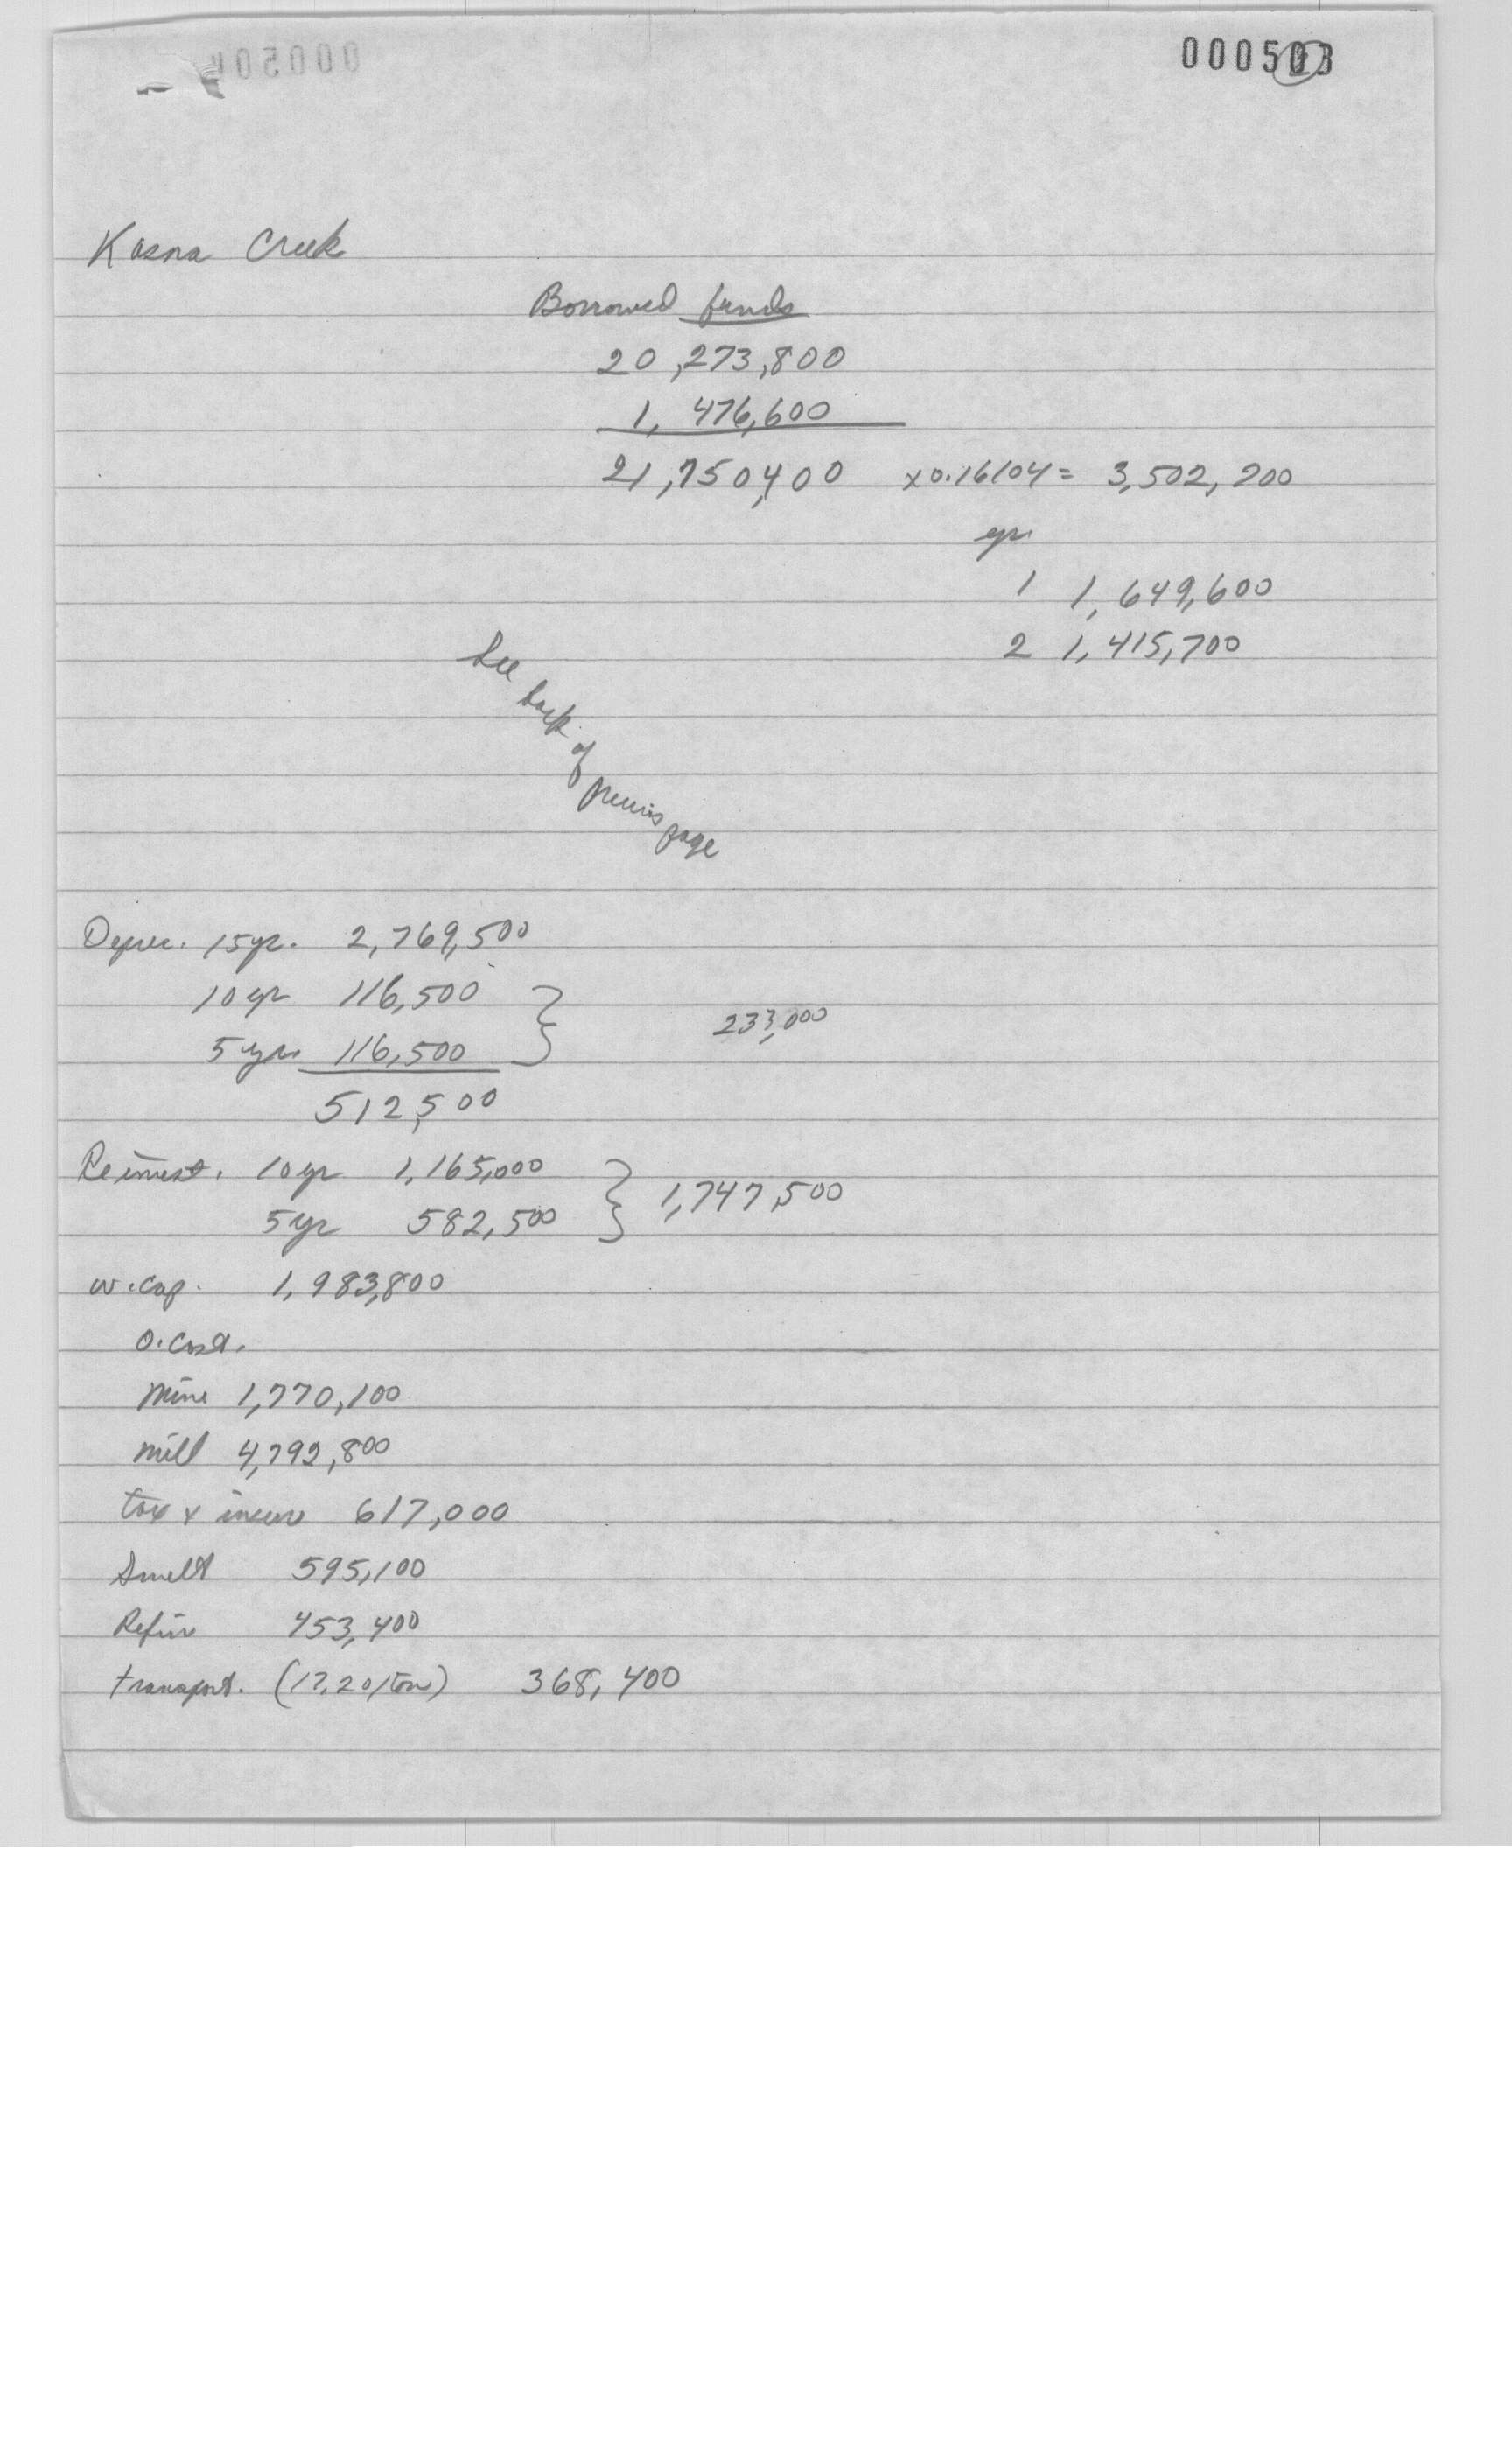 000503
Kasna Creek
Borrowed funds
20,273,800
1,476,600
21,750,400 x0.16104= 3,502,700
yr.
1 1,649,600
2 1,415,700
See back of previous page
Deprec. 15yr. 2,769,500
10 yr 116,500
233,000
5 yr. 116,500
512,500
Reinvest. 10 yr 1,165,000
1,747,500
5 yr 582,500
w.cap. 1,983,800
O.Cost.
Mine 1,770,100
Mill 4,792,800
tax + insur 617,000
Smelt 595,100
Refin 453,400
transport. (17.20/ton) 368,400